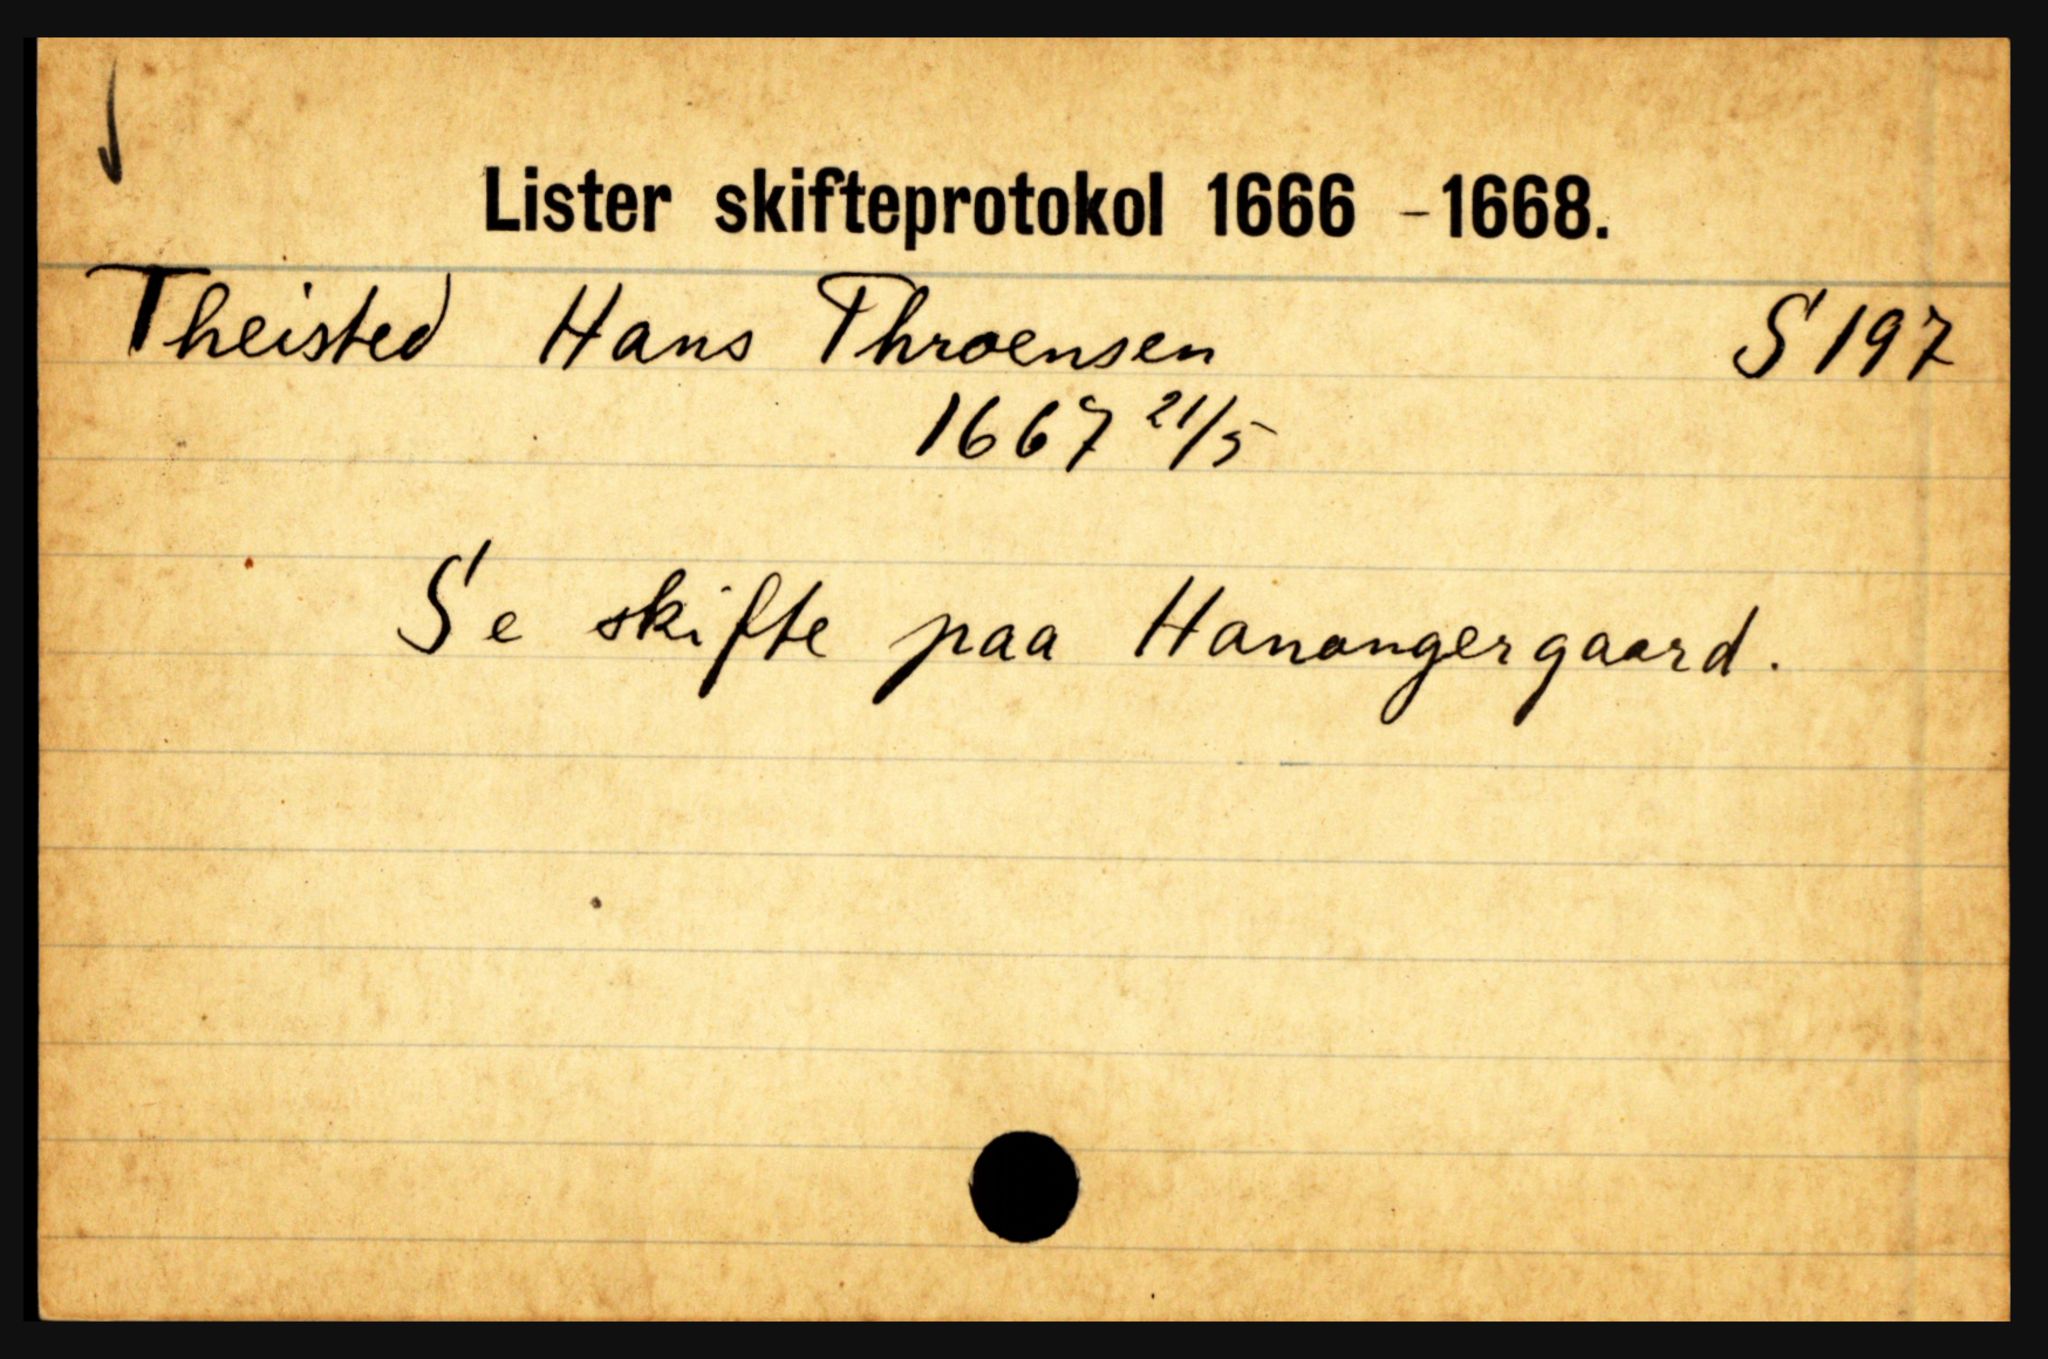 Lister skifteprotokol 1666 - 1668.
Theisted Hans Throensen S 197
1667 21/5
Se skifte paa Hanangergaard.